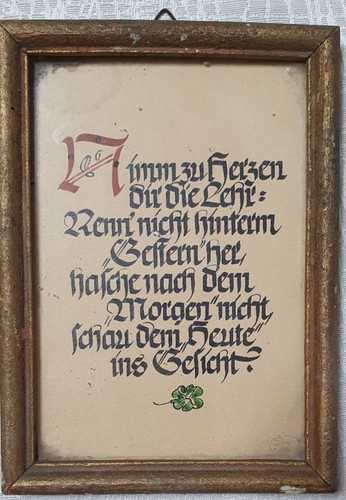 Nimm zu Herzen
dir die Lehr:
Renn' nicht hinterm
„Gestern“ her,
hasche nach dem
„Morgen“ nicht,
schau dem „Heute“
ins Gesicht.